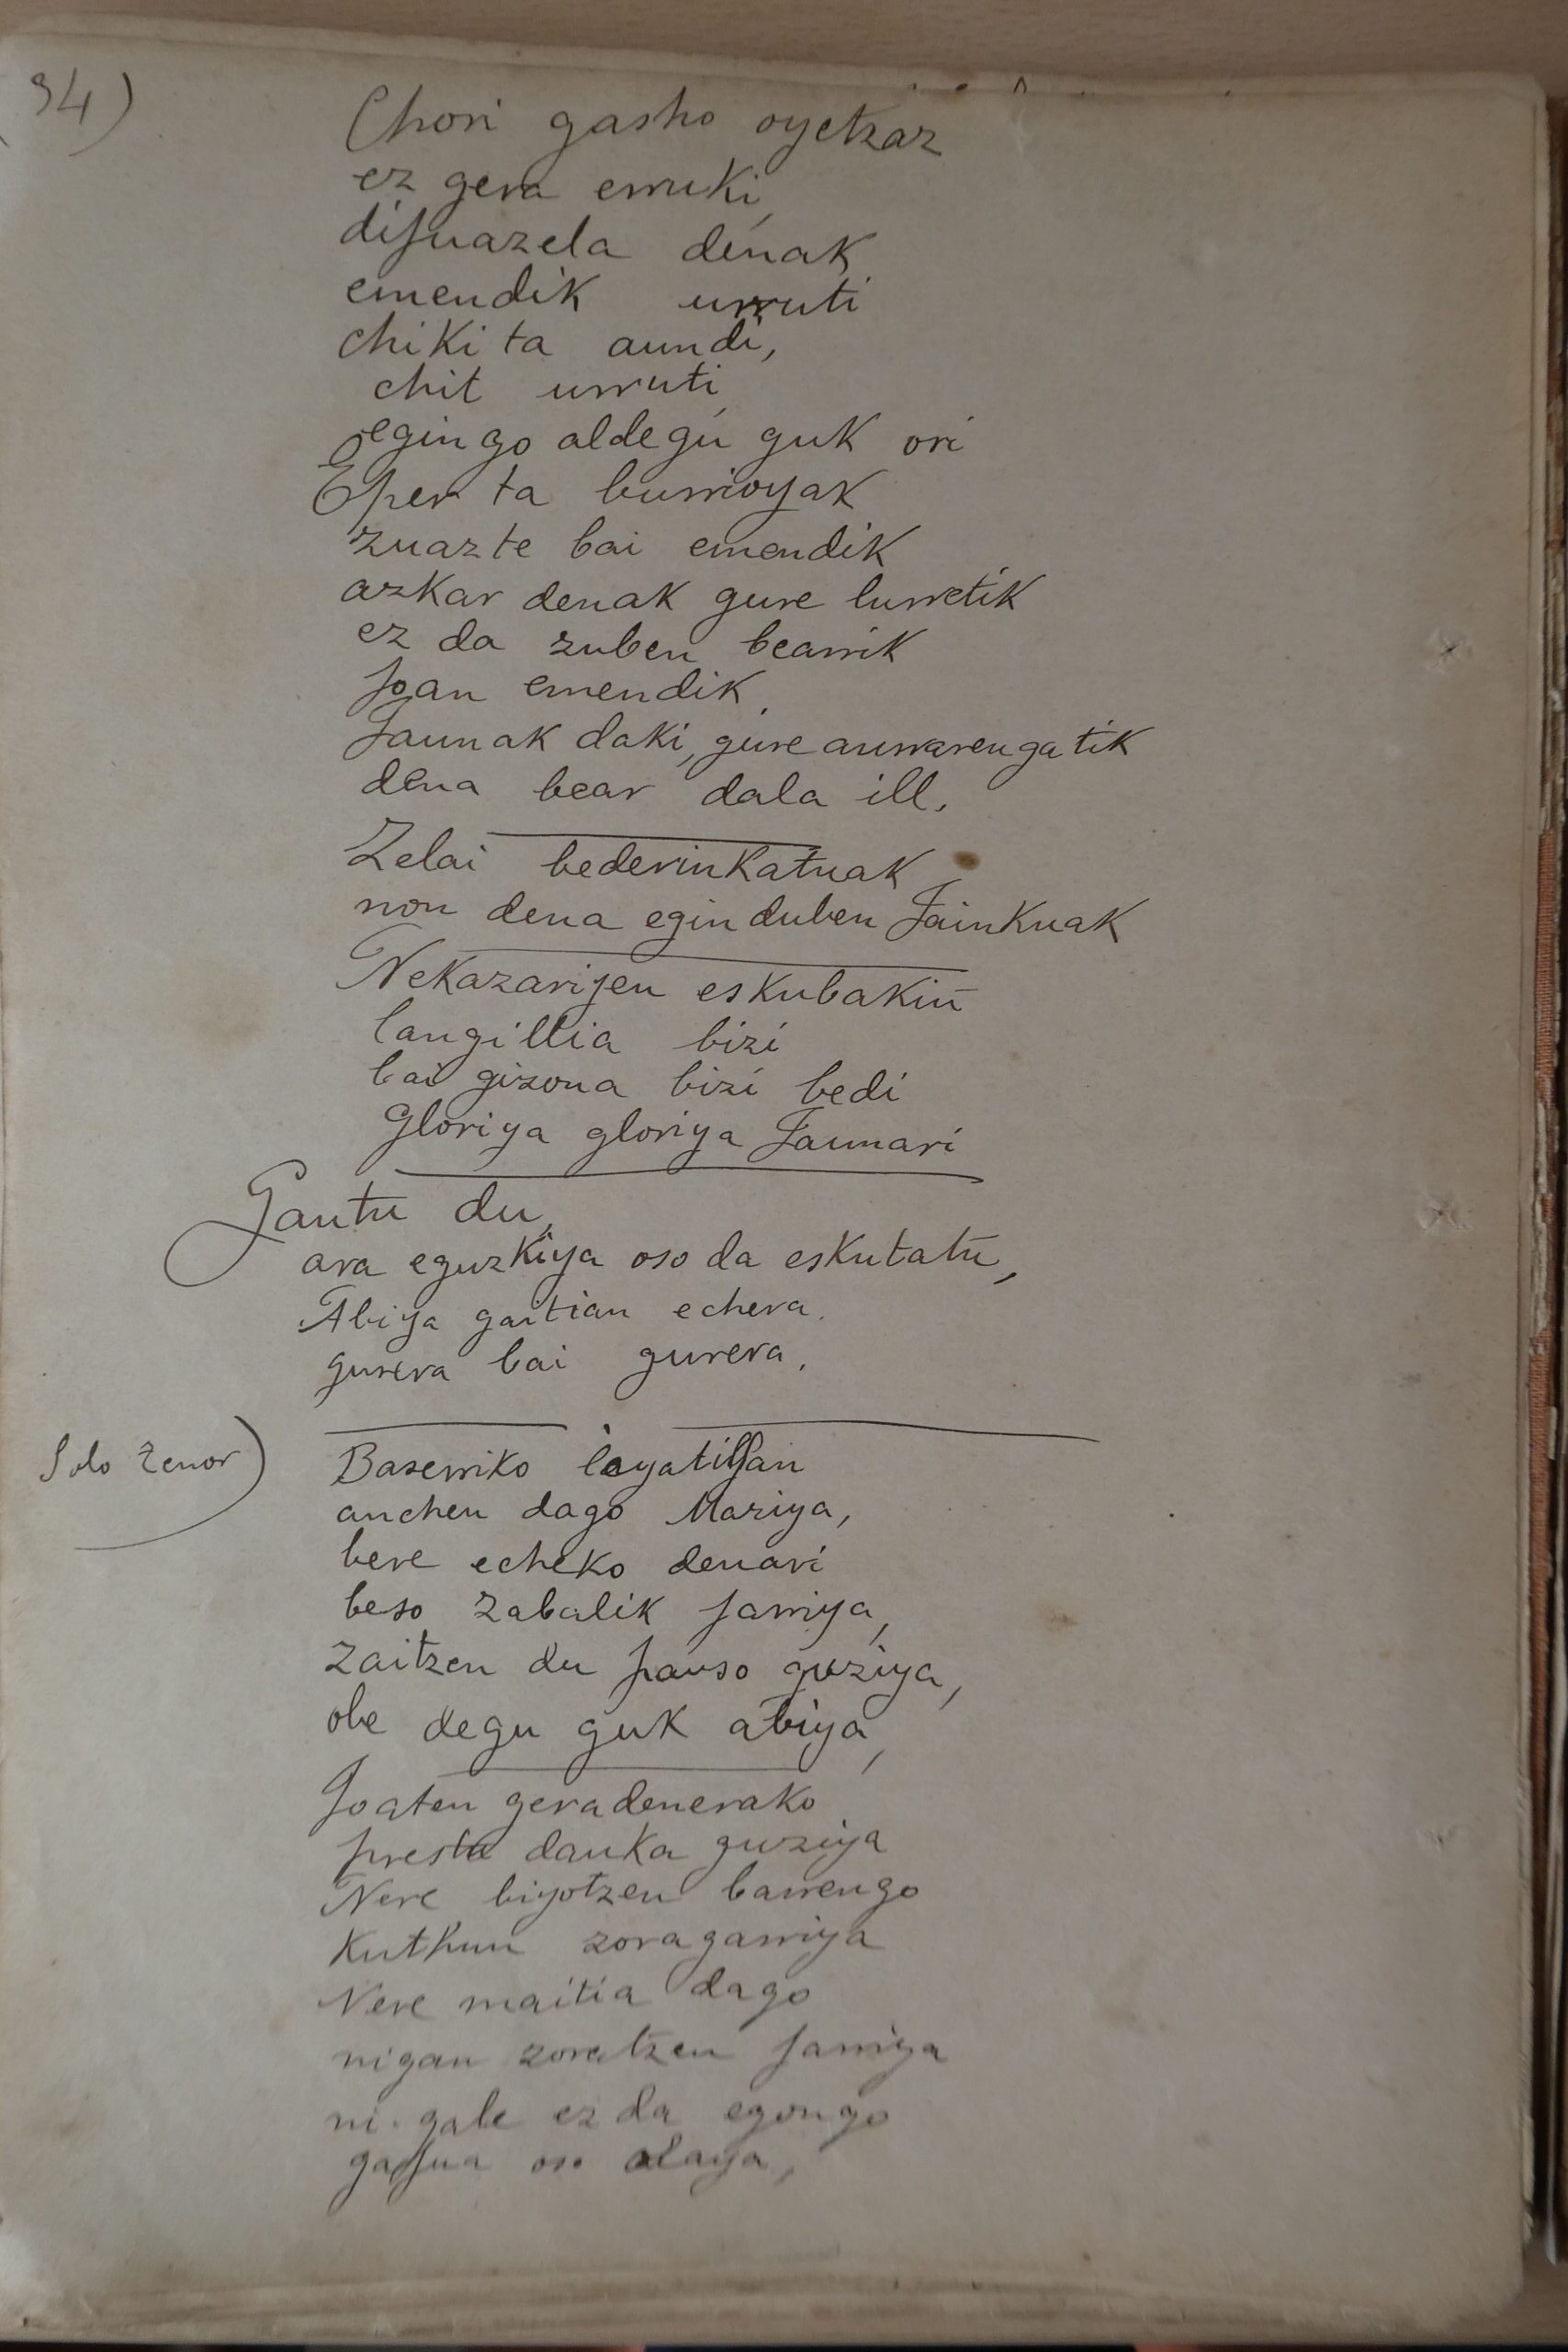 34)
Chori gasho oyetzaz
ez gera erruki,
dijuazela denak
emendik urruti
chiki ta aundi,
chit urruti
egingo aldegu guk ori
Eper ta burrioyak
zuazte bai emendik
azkar denak gure lurretik
ez da zuben bearrik
Joan emendik,
Jaunak daki, gure aurrarengatik
dena bear dala ill.
Zelai bederinkatuak
non dena egin duben Jainkuak
Nekazarijen eskubakin
langillia bizi
bai gizona bizi bedi
Gloriya gloriya Jaunari
Gautu du,
ara eguzkiya oso da eskutatu,
Abiya gaitian echera.
gurera bai gurera.
Solo tenor)
Baserriko leyatillan
anchen dago Mariya,
bere echeko denari
beso zabalik jarriya,
zaitzen du pauso guziya,
obe degu guk abiya,
Joaten geradenerako
presta dauka guziya
Nere biyotzen barrengo
Kuthun zoragarriya
Nere maitia dago
nigan zoratzen jarriya
ni gabe ez da egongo
gajua oso alaya,